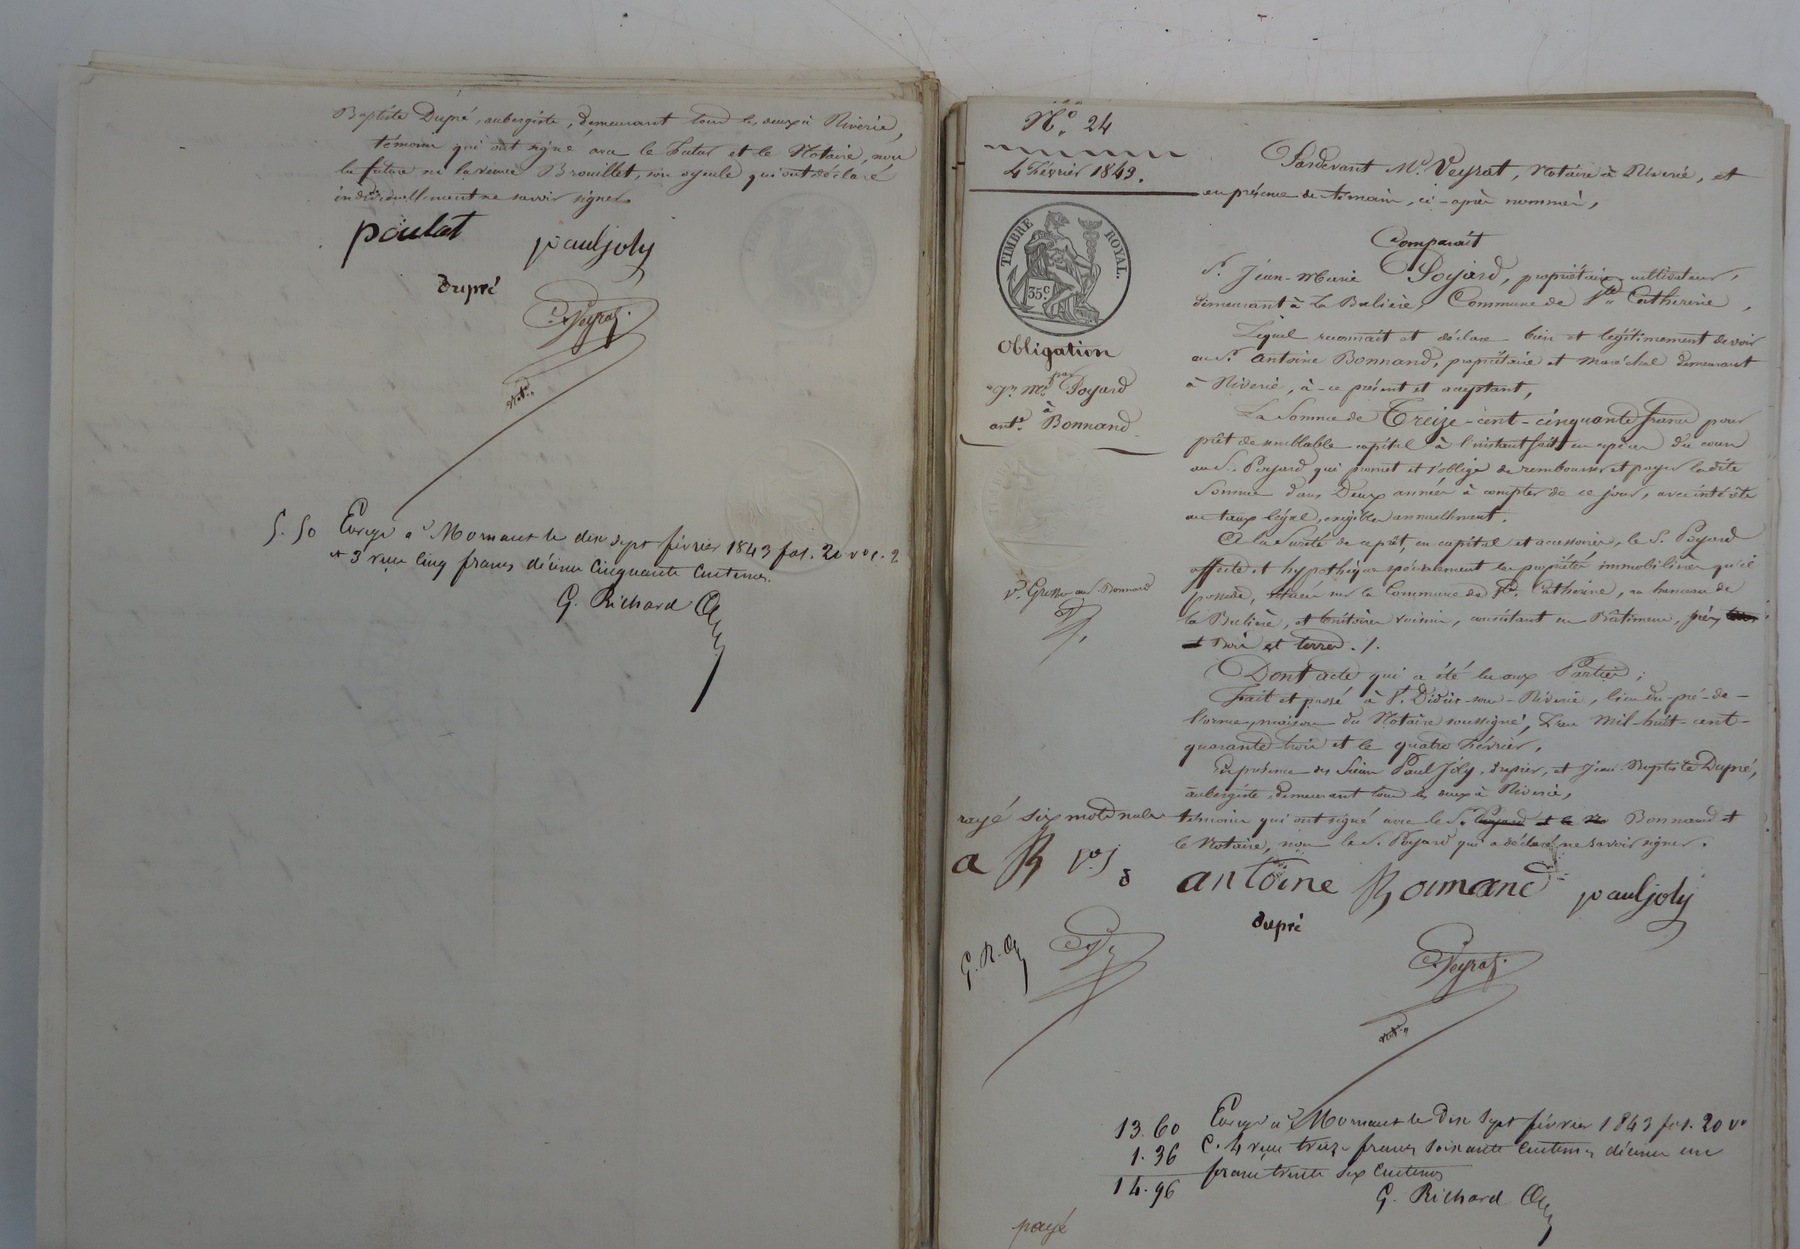 Baptiste Dupré, aubergiste, demeurant tous les deux à Riverie,
témoins qui ont signé avec le Futur et le Notaire, non
la future ni la veuve Brouillet, son ayeule qui ont déclaré
individuellement ne savoir signer.
poulat
paul joly
dupré
Veyrat
Not.
5. 50 Enregé à Mornant le dix sept février 1843 fol. 20 vo c. 2
et 3 reçu cinq francs décime cinquante centimes.
G. Richard
No. 24
4 Février 1843.
TIMBRE ROYAL.
35 c
Obligation
par
Jn. Mie. Poyard
à
ante. Bonnand
Vr. Grosse au S. Bonnand
Pardevant Me. Veyrat, Notaire à Riverie, et
en présence de témoins, ci-après nommés,
Comparait
Sr. Jean-Marie Poyard, propriétaire cultivateur,
demeurant à la Balière, Commune de Ste. Catherine,
Lequel reconnait et déclare bien et légitimement devoir
au Sr. Antoine Bonnand, propriétaire et maréchal demeurant
à Riverie, à-ce présent et acceptant,
La Somme de Treize-cent-cinquante francs pour
prêt de semblable capital à l'instant fait en espèces du cours
au S. Poyard qui promet et s'oblige de rembourser et payer la dite
Somme dans Deux années à compter de ce jour, avec intérêts
au taux légal, exigibles annuellement.
A la Sureté de ce prêt, en capital et accessoires, le S. Poyard
affecte et hypothèque spécialement les propriétés immobilières qu'il
possède, situées sur la Commune de Ste. Catherine, au hameau de
la Balière, et territoires voisins, consistant en Bâtiments, prés,
et Bois et terres ./.
Dont acte qui a été lu aux Parties;
Fait et passé à St. Didier-sous-Riverie, lieu du-pré-de-
l'orme, maison du Notaire soussigné, L'an Mil-huit-cent-
quarante-trois et le quatre Février,
En présence des Sieurs Paul Joly, et Jean Baptiste Dupré,
aubergiste, demeurant tous les deux à Riverie,
témoins qui ont signé avec le S. Poyard et le No Bonnand et
le Notaire, non le S. Poyard qui a déclaré ne savoir signer.
rayé six mots nuls
a B
antoine Bonnand
paul joly
dupré
G. R.
Veyrat
Not.
13. 60 Enregé à Mornant le Dix Sept février 1843 fol. 20 vo
1. 36 c. 4 reçu treize francs soixante centimes décime un
14. 96 franc trente six centimes
G. Richard
payé